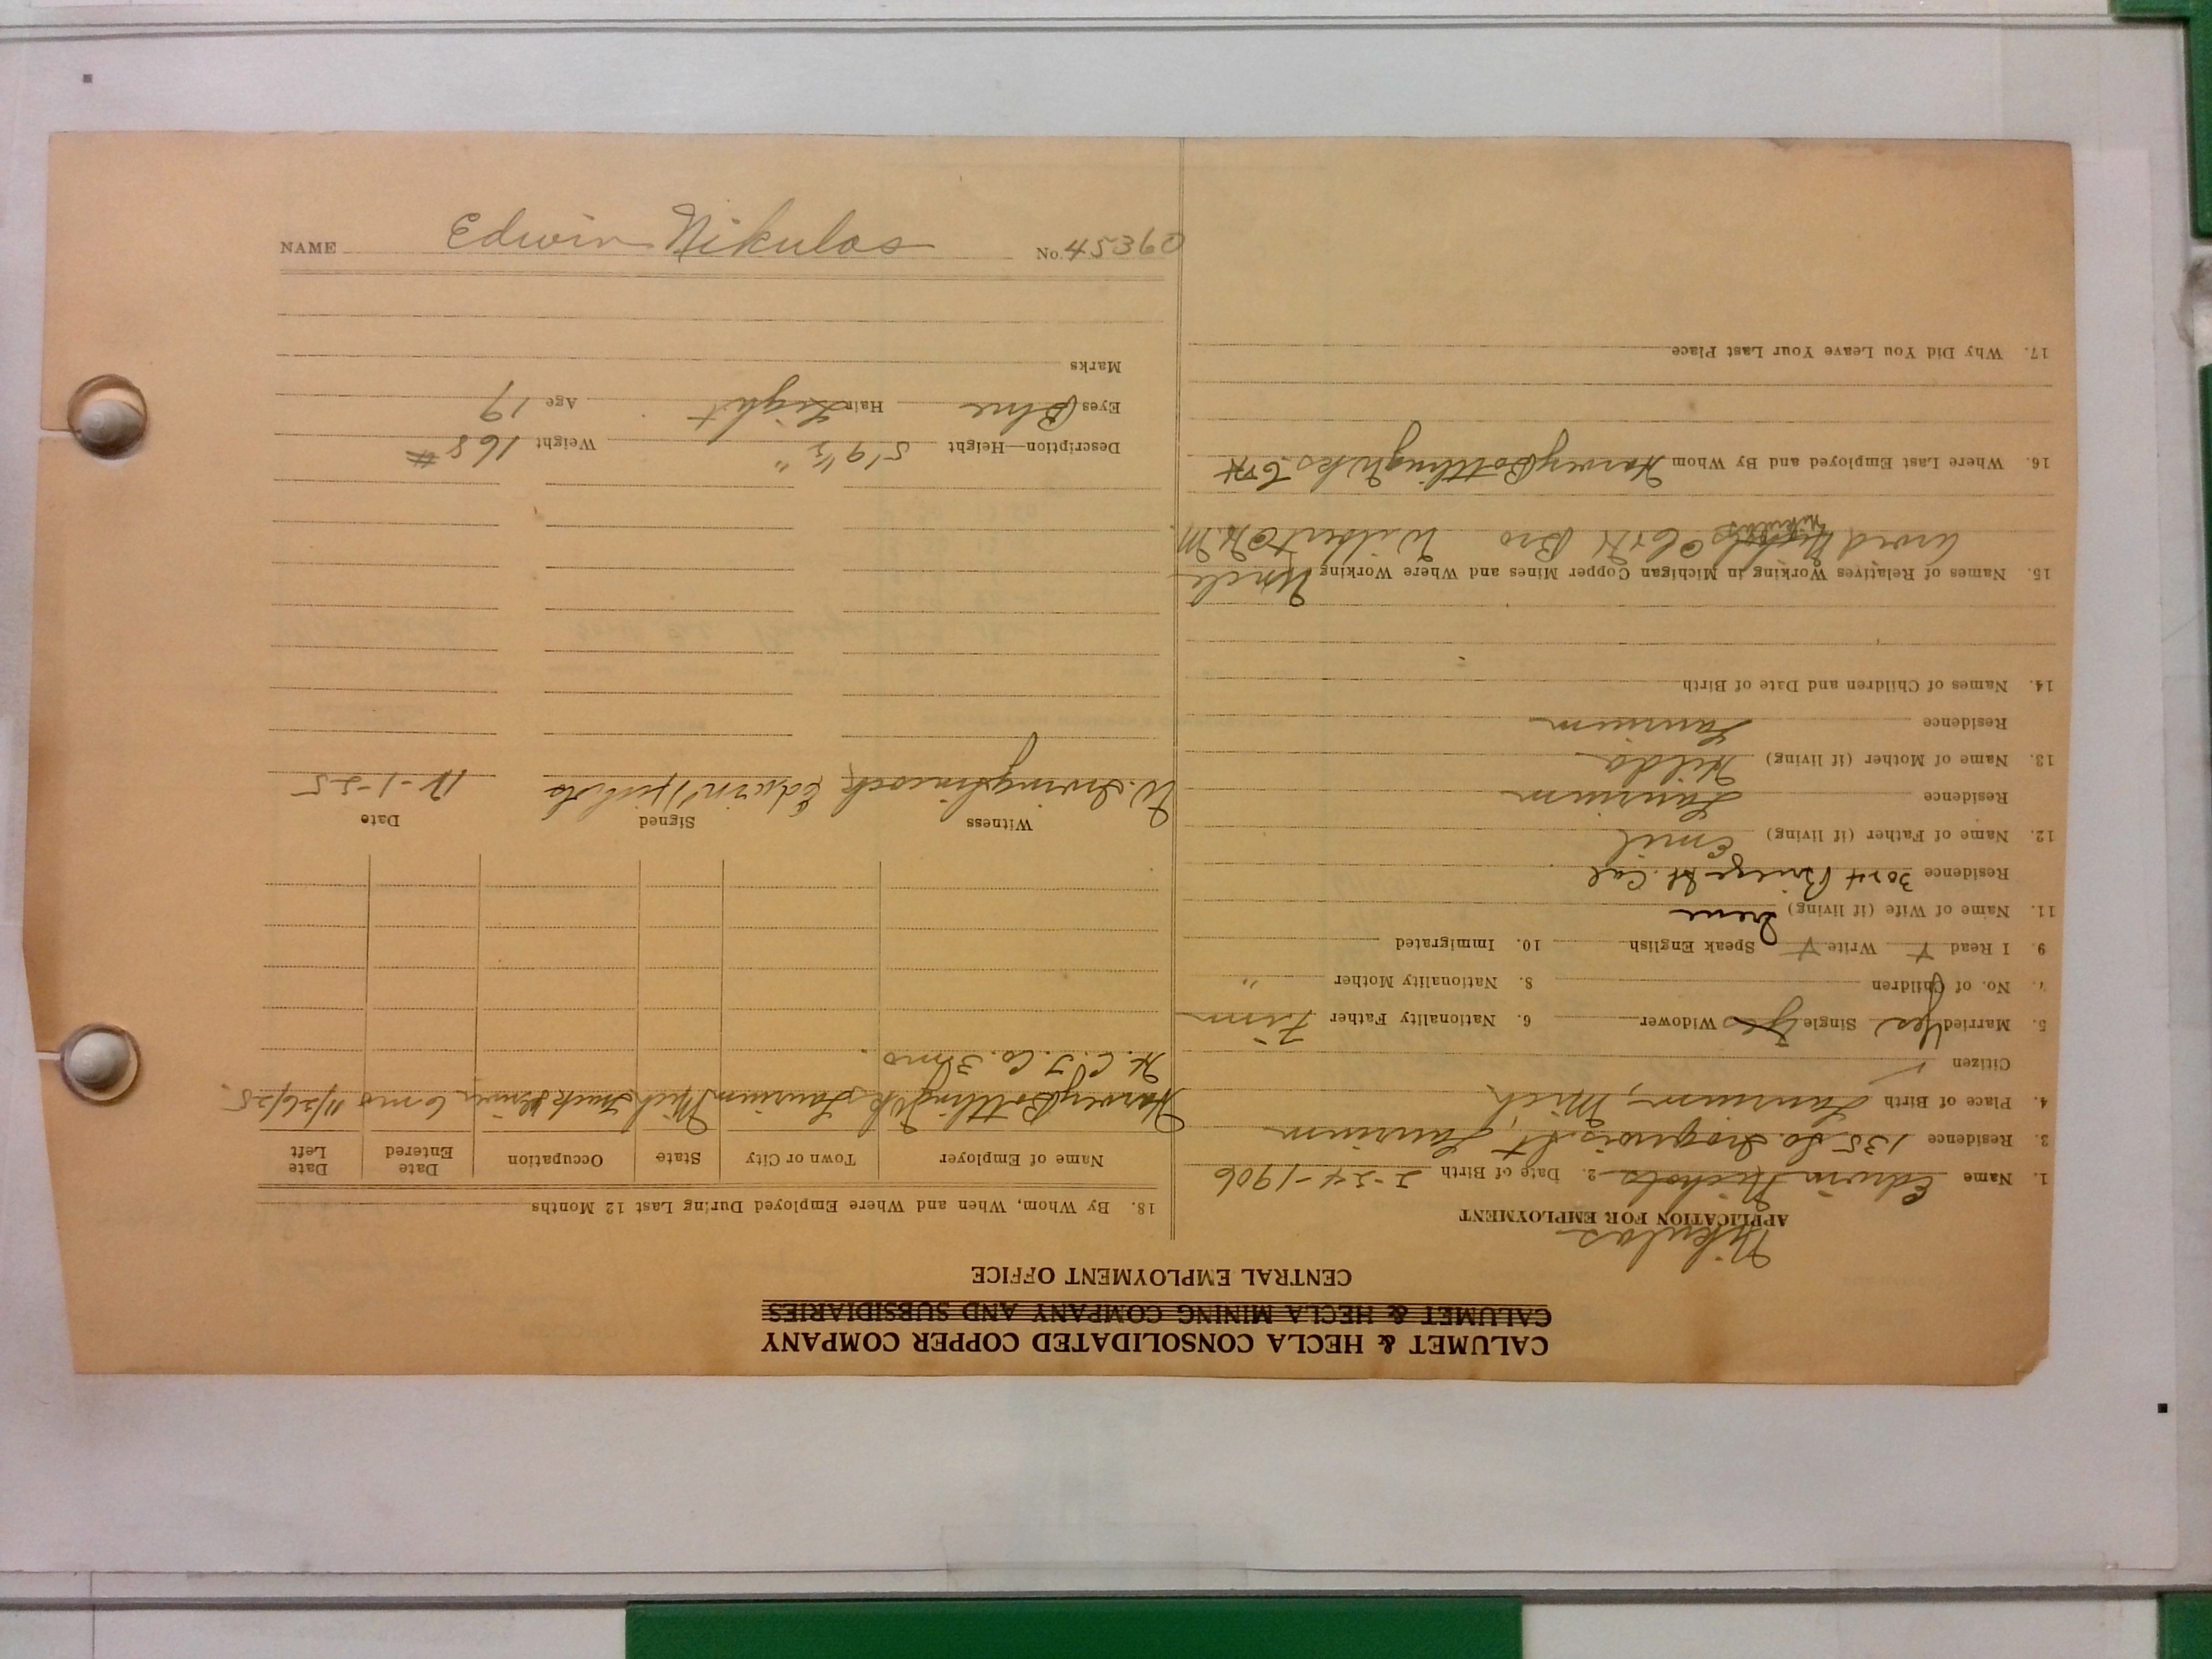 NAME Edwin Nikulas No. 45360
CALUMET & HECLA CONSOLIDATED COPPER COMPANY
CALUMET & HECLA MINING COMPANY AND SUBSIDIARIES
CENTRAL EMPLOYMENT OFFICE
Nikulas
APPLICATION FOR EMPLOYMENT
1. Name Edwin Nichols 2. Date of Birth 2-24-1906
3. Residence 135 So. Iroquois St, Laurium
4. Place of Birth Laurium, Mich
Citizen ✓
5. Married Yes Single Yes Widower 6. Nationality Father Finn
7. No. of Children 8. Nationality Mother "
9. I Read Y Write Y Speak English 10. Immigrated
11. Name of Wife (if living) Irene
Residence 3024 St. Cal
12. Name of Father (if living) Emil
Residence Laurium
13. Name of Mother (if living) Hilda
Residence Laurium
14. Names of Children and Date of Birth
15. Names of Relatives Working in Michigan Copper Mines and Where Working Uncle
Nikulas C&H Bro Wilbert
16. Where Last Employed and By Whom Harvey Bottling Wks. C&H
17. Why Did You Leave Your Last Place
18. By Whom, When and Where Employed During Last 12 Months
Name of Employer Town or City State Occupation Date Entered Date Left
Harvey Bottling Wks Laurium Mich Truck Driver 6 mo 11/26/25
H. C. T. Co. 3 mo.
Witness Signed Date
W. Irving Edwin Nichols 12-1-25
Description—Height 5'9½" Weight 168 #
Eyes Blue Hair Light Age 19
Marks